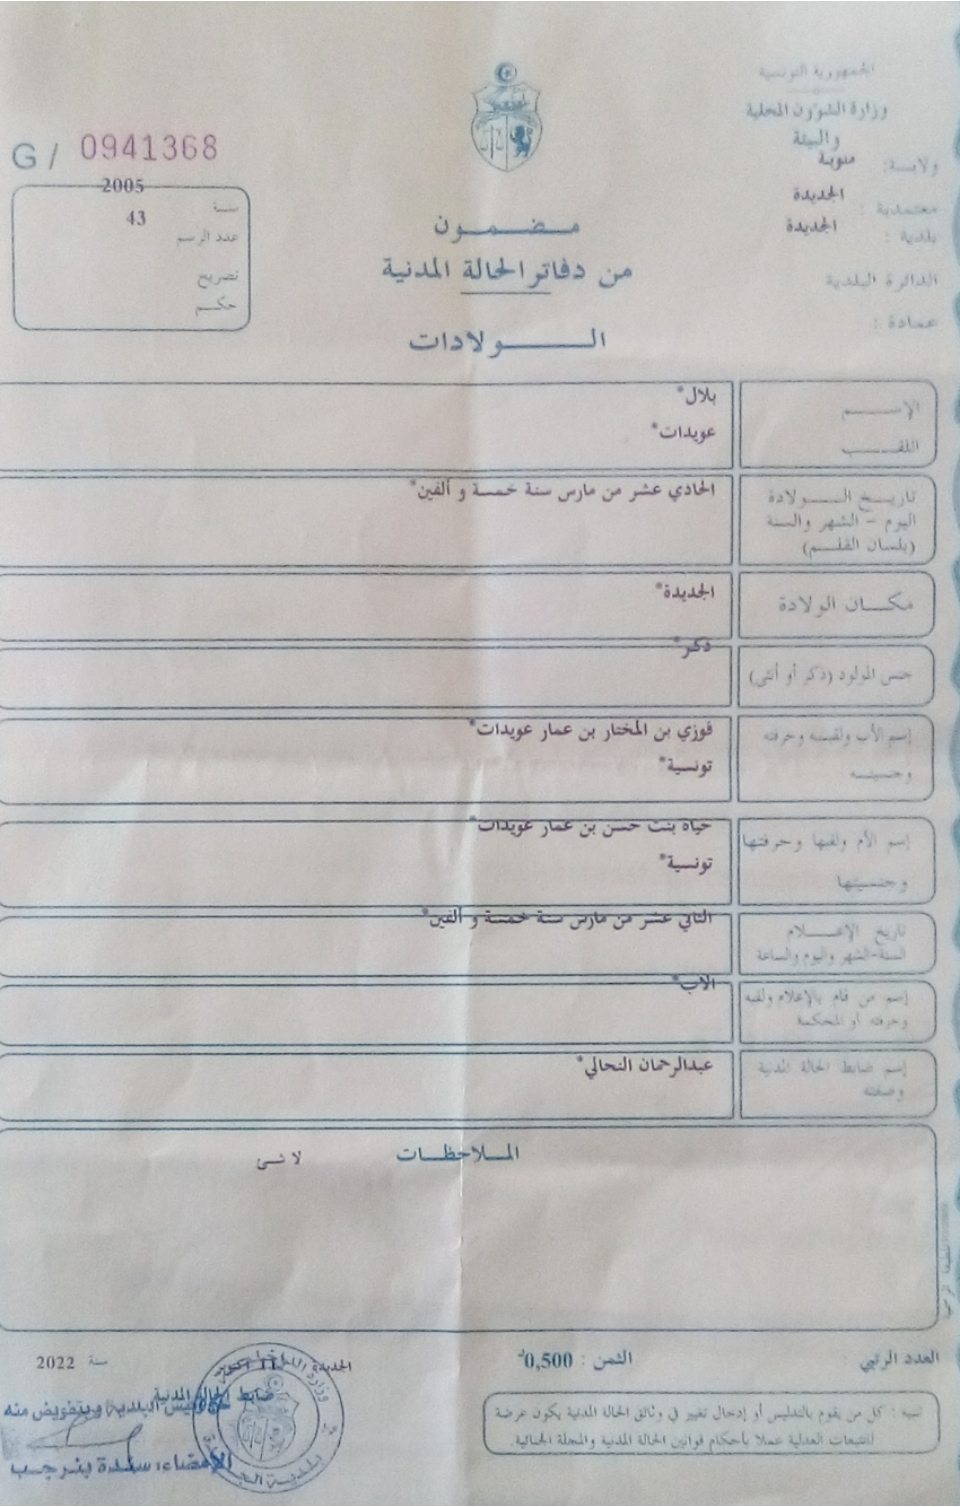 الجمهورية التونسية
وزارة الشؤون المحلية
والبيئة
ولايـة: منوبة
معتمدية : الجديدة
بلدية : الجديدة
الدائرة البلدية
عمادة :
مـضـمـون
من دفاتر الحالة المدنية
الـولادات
G / 0941368
سنة 2005
عدد الرسم 43
تصريح
حكـم
الإسـم بلال*
اللقـب عويدات*
تاريـخ الـولادة الحادي عشر من مارس سنة خمسة و ألفين*
اليوم - الشهر والسنة
(بلسان القلـم)
مكـان الولادة الجديدة*
جنس المولود (ذكر أو أنثى) ذكر*
إسم الأب ولقبـه وحرفته فوزي بن المختار بن عمار عويدات*
وجنسيتـه تونسية*
إسم الأم ولقبها وحرفتها حياة بنت حسن بن عمار عويدات*
وجنسيتها تونسية*
تاريخ الإعـلام الثاني عشر من مارس سنة خمسة و ألفين*
السنة-الشهر واليوم والساعة
إسم من قام بالإعلام ولقبه الاب*
وحرفته أو المحكمة
إسم ضابط الحالة المدنية عبدالرحمان النحالي*
وصفته
الملاحظـات
لا شئ
العدد الرتبي :
الثمن : 0,500د
تنبيه : كل من يقوم بالتدليس أو إدخال تغيير في وثائق الحالة المدنية يكون عرضة
للتتبعات العدلية عملا بأحكام قوانين الحالة المدنية والمجلة الجنائية.
الجديدة 11 أكتوبر سنة 2022
ضابط الحالة المدنية
رئيس البلدية وبتفويض منه
الإمضاء: سندة بنرجب